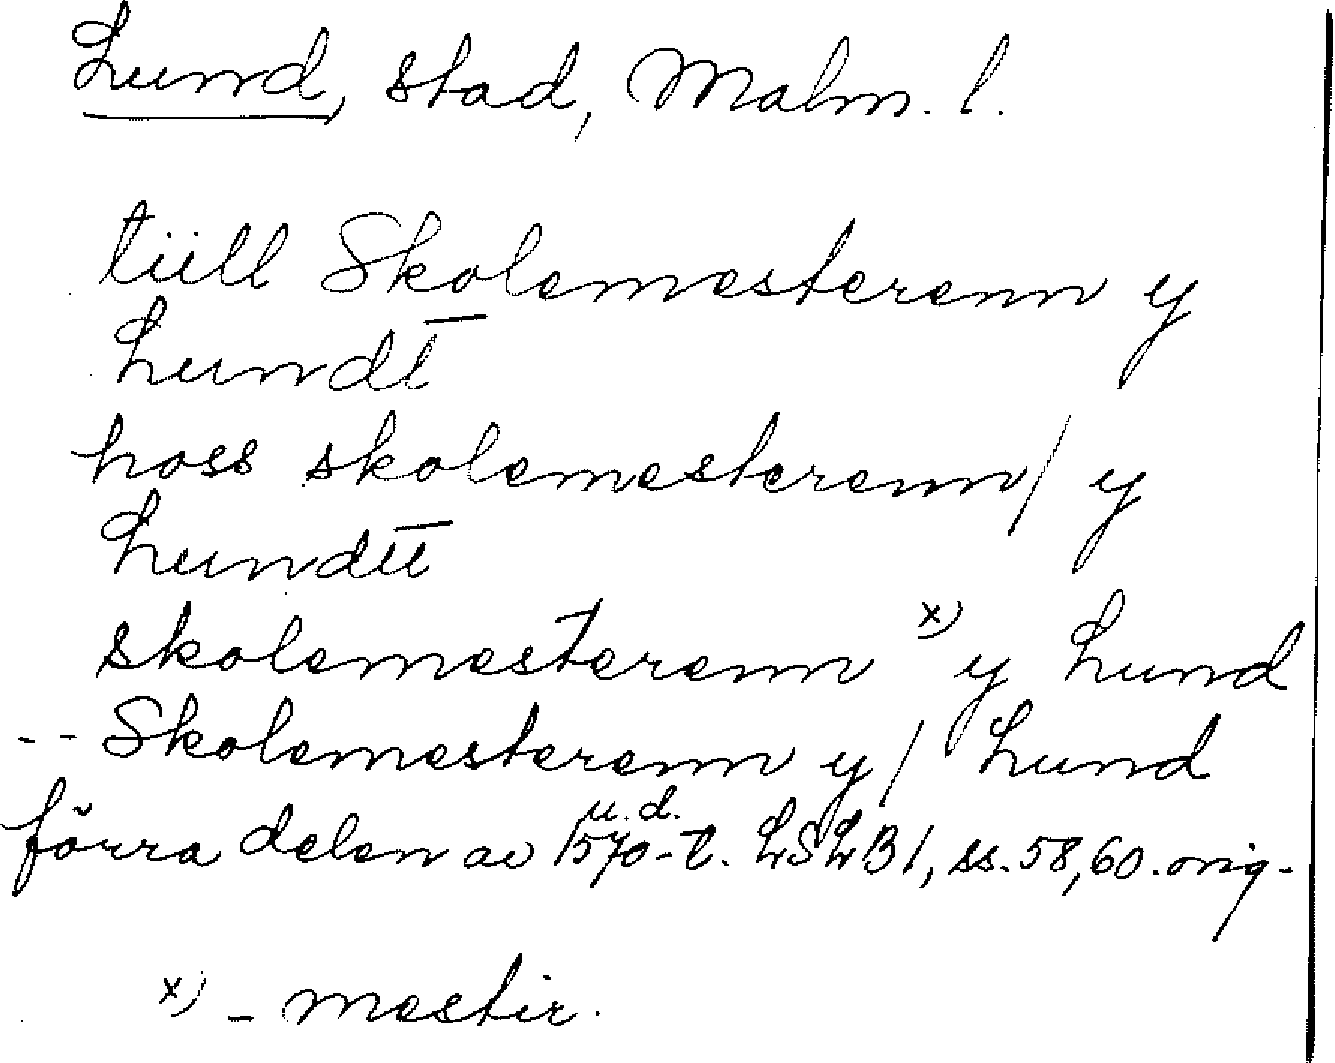 Lund, stad, Malm. l.
tiill Skolemesterenn y
Lundt̄
hoss skolemesterenn/ y
skolemesterenn x) y Lund
-- Skolemesterenn y/ Lund
u. d.
förra delen av 1570-t. LSLB1, ss. 58, 60. orig-
x) - mestir.